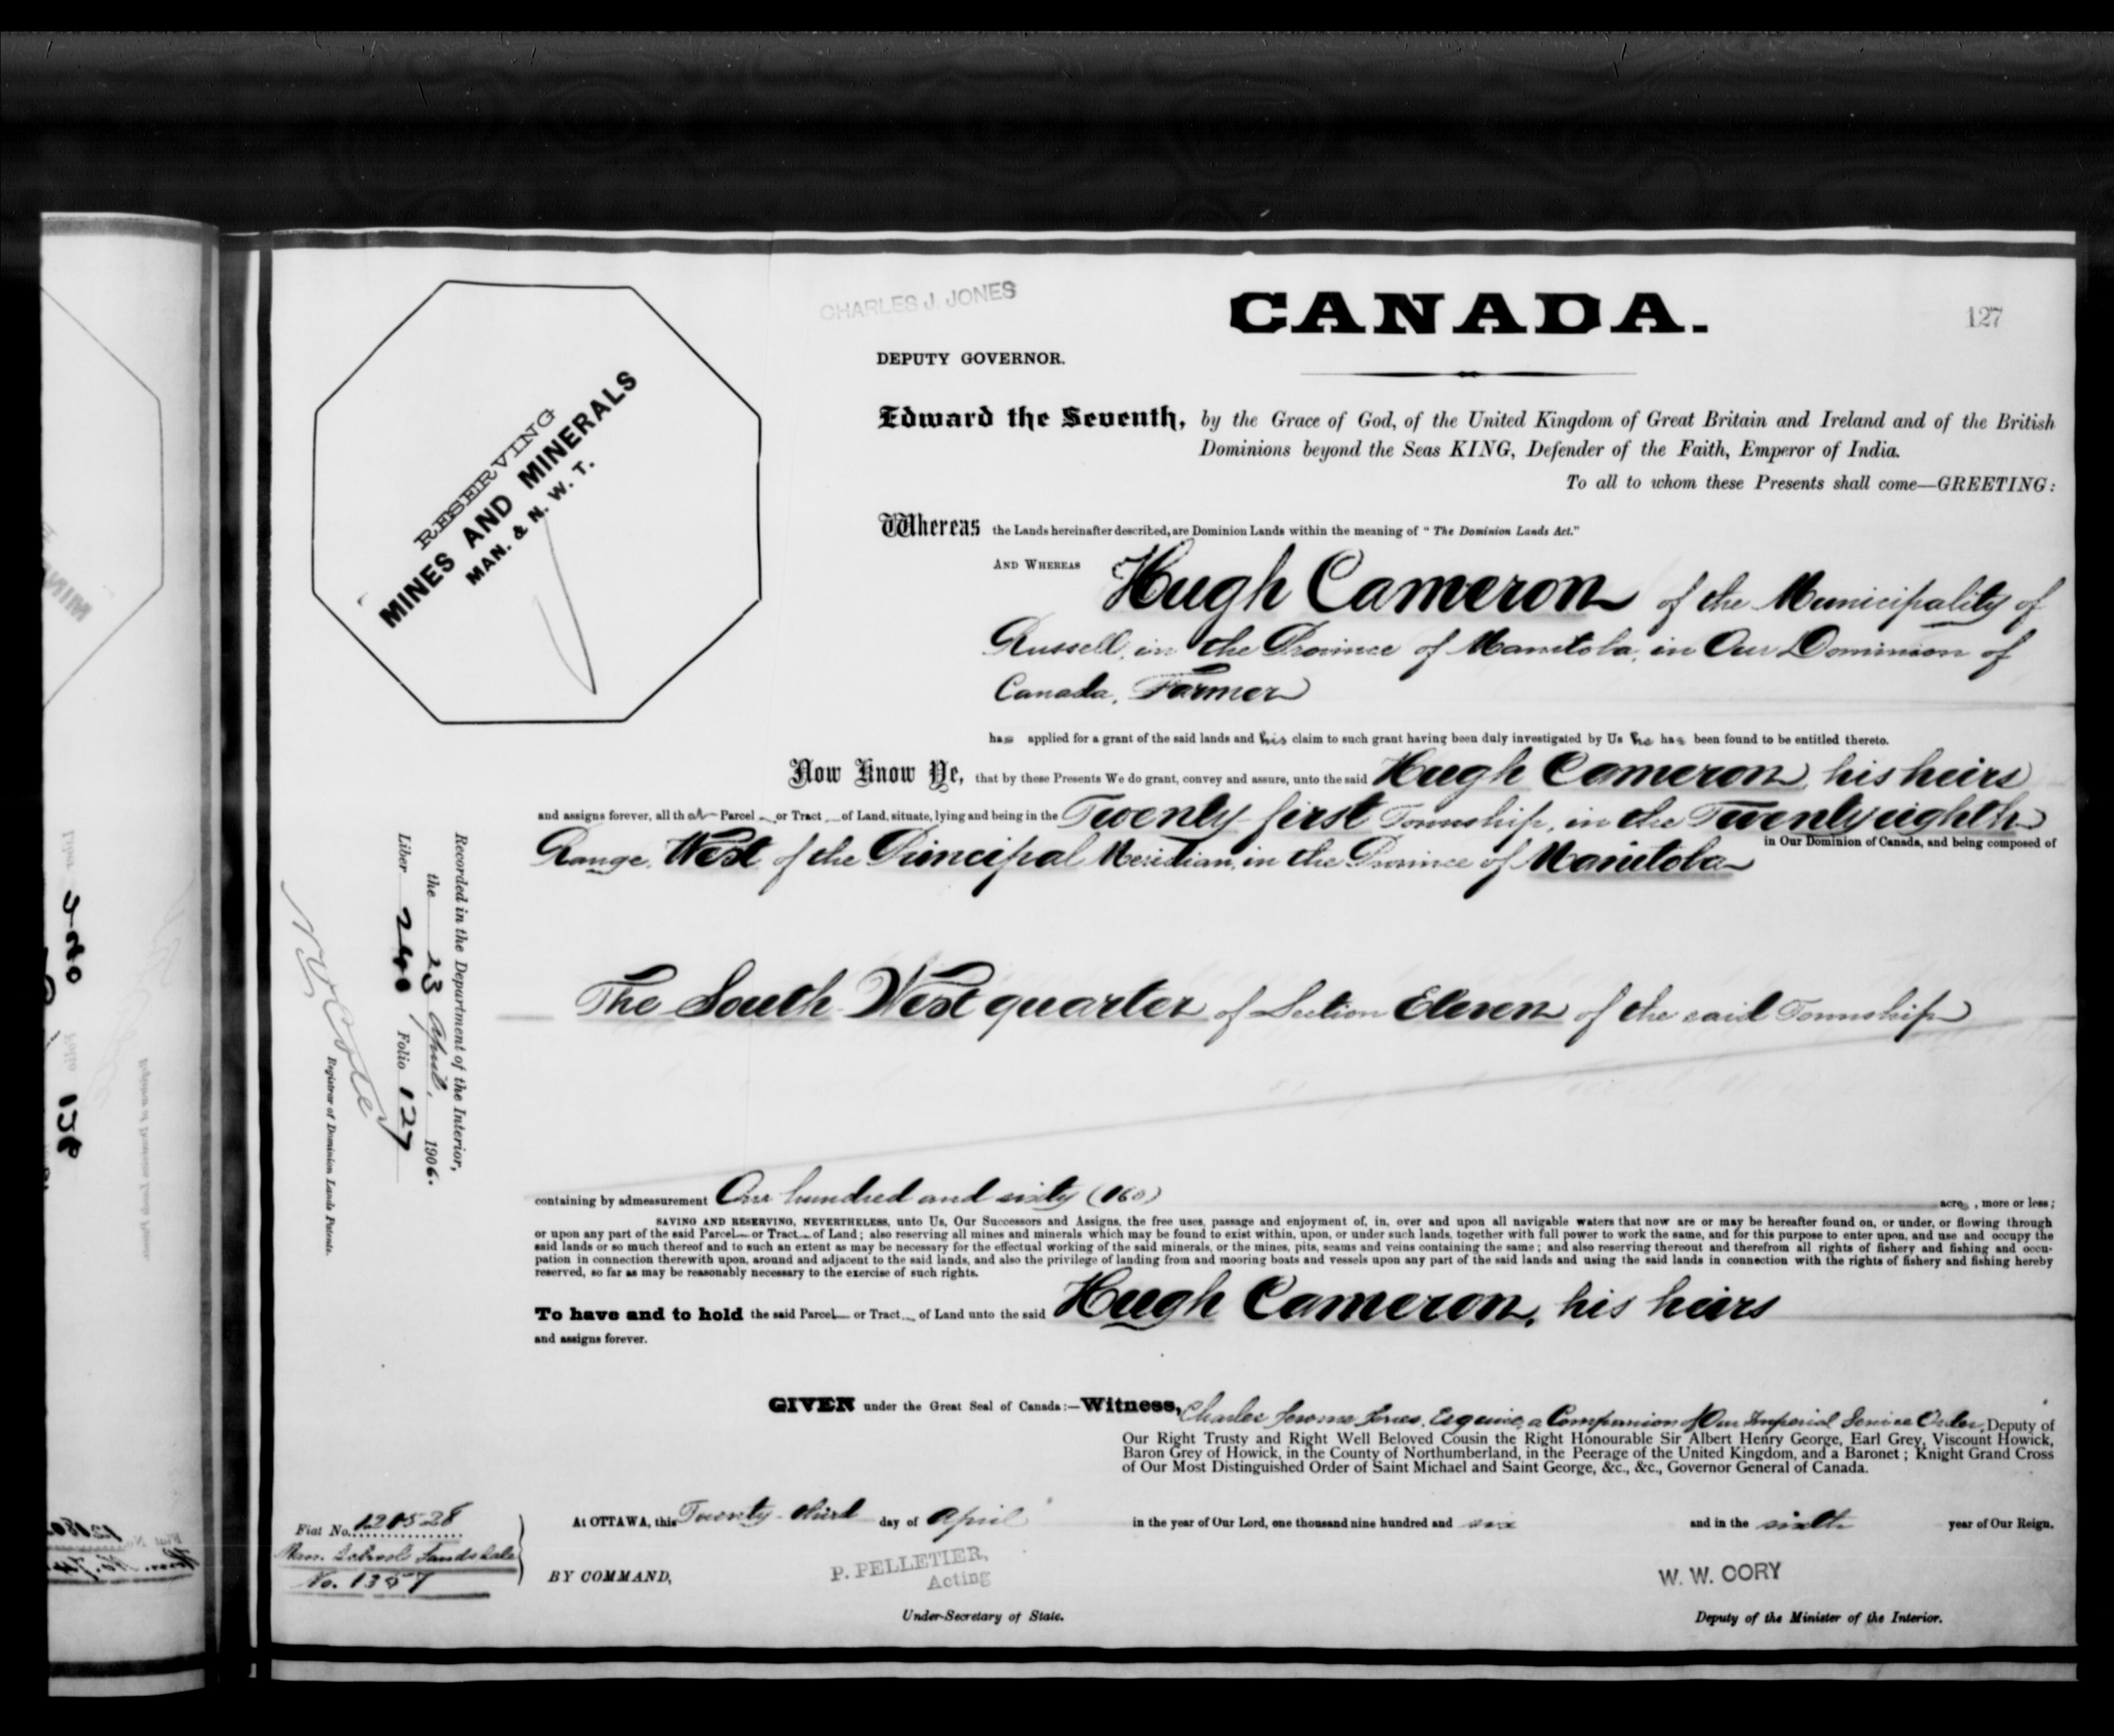 CHARLES J. JONES
CANADA.
127
DEPUTY GOVERNOR.
RESERVING
MINES AND MINERALS
MAN. & N. W. T.
Edward the Seventh, by the Grace of God, of the United Kingdom of Great Britain and Ireland and of the British
Dominions beyond the Seas KING, Defender of the Faith, Emperor of India.
To all to whom these Presents shall come—GREETING:
Whereas the Lands hereinafter described, are Dominion Lands within the meaning of "The Dominion Lands Act."
AND WHEREAS Hugh Cameron of the Municipality of
Russell, in the Province of Manitoba, in Our Dominion of
Canada, Farmer
has applied for a grant of the said lands and his claim to such grant having been duly investigated by Us he has been found to be entitled thereto.
Now Know Ye, that by these Presents We do grant, convey and assure, unto the said Hugh Cameron, his heirs
and assigns forever, all that Parcel or Tract of Land, situate, lying and being in the Twenty first Township, in the Twenty eighth
Range, West of the Principal Meridian, in the Province of Manitoba in Our Dominion of Canada, and being composed of
The South West quarter of Section Eleven of the said Township
Recorded in the Department of the Interior,
the 23 April, 1906.
Liber 240 Folio 127
Registrar of Dominion Lands Patents.
containing by admeasurement One hundred and sixty (160) acres, more or less;
SAVING AND RESERVING, NEVERTHELESS, unto Us, Our Successors and Assigns, the free uses, passage and enjoyment of, in, over and upon all navigable waters that now are or may be hereafter found on, or under, or flowing through
or upon any part of the said Parcel or Tract of Land; also reserving all mines and minerals which may be found to exist within, upon, or under such lands, together with full power to work the same, and for this purpose to enter upon, and use and occupy the
said lands or so much thereof and to such an extent as may be necessary for the effectual working of the said minerals, or the mines, pits, seams and veins containing the same; and also reserving thereout and therefrom all rights of fishery and fishing and occu-
pation in connection therewith upon, around and adjacent to the said lands, and also the privilege of landing from and mooring boats and vessels upon any part of the said lands and using the said lands in connection with the rights of fishery and fishing hereby
reserved, so far as may be reasonably necessary to the exercise of such rights.
To have and to hold the said Parcel or Tract of Land unto the said Hugh Cameron, his heirs
and assigns forever.
GIVEN under the Great Seal of Canada:—Witness, Charles Jerome Jones, Esquire, a Companion of Our Imperial Service Order, Deputy of
Our Right Trusty and Right Well Beloved Cousin the Right Honourable Sir Albert Henry George, Earl Grey, Viscount Howick,
Baron Grey of Howick, in the County of Northumberland, in the Peerage of the United Kingdom, and a Baronet; Knight Grand Cross
of Our Most Distinguished Order of Saint Michael and Saint George, &c., &c., Governor General of Canada.
At OTTAWA, this Twenty-third day of April in the year of Our Lord, one thousand nine hundred and six and in the sixth year of Our Reign.
Fiat No. 120528
Man. School Lands Sale
No. 1357
BY COMMAND,
P. PELLETIER,
Acting
Under-Secretary of State.
W. W. CORY
Deputy of the Minister of the Interior.